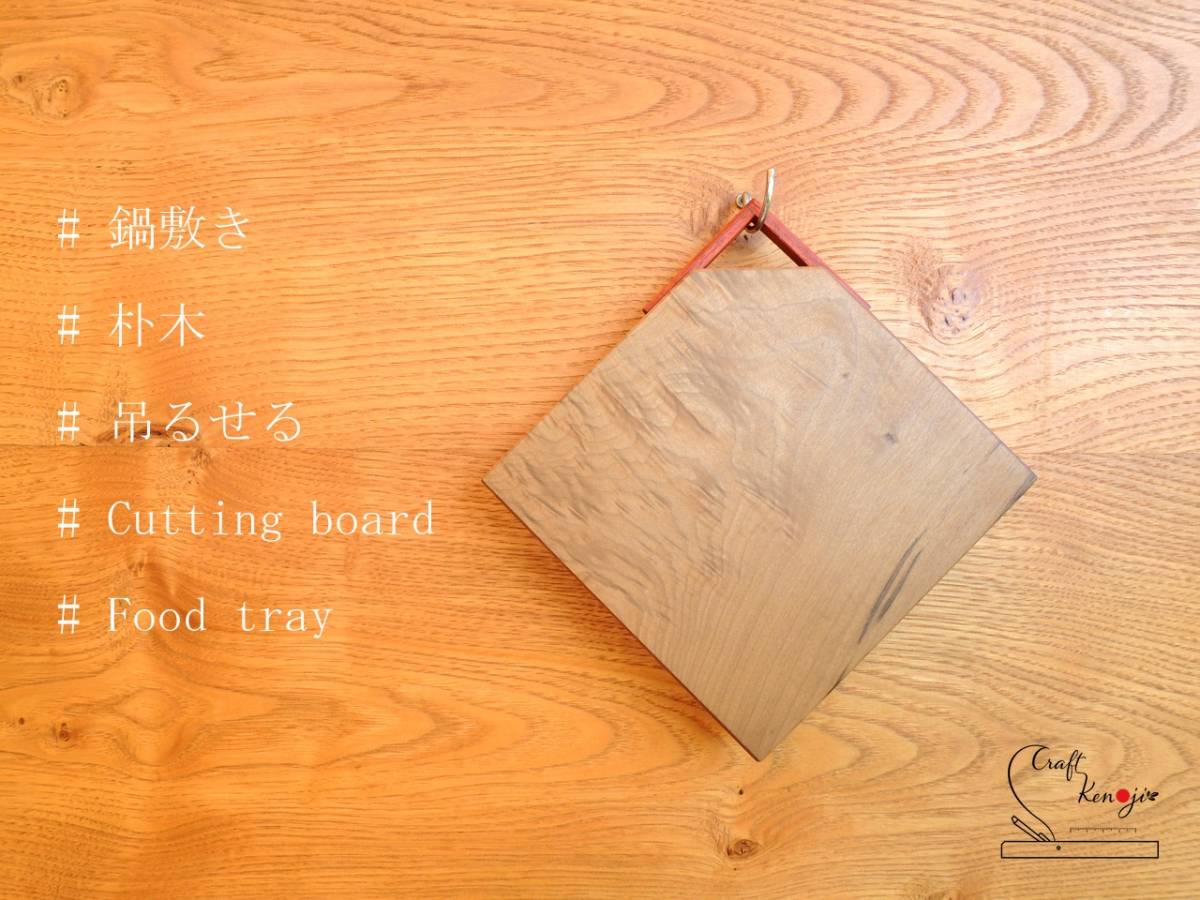 # 鍋敷き
# 朴木
# 吊るせる
# Cutting board
# Food tray
Craft
Kenoji